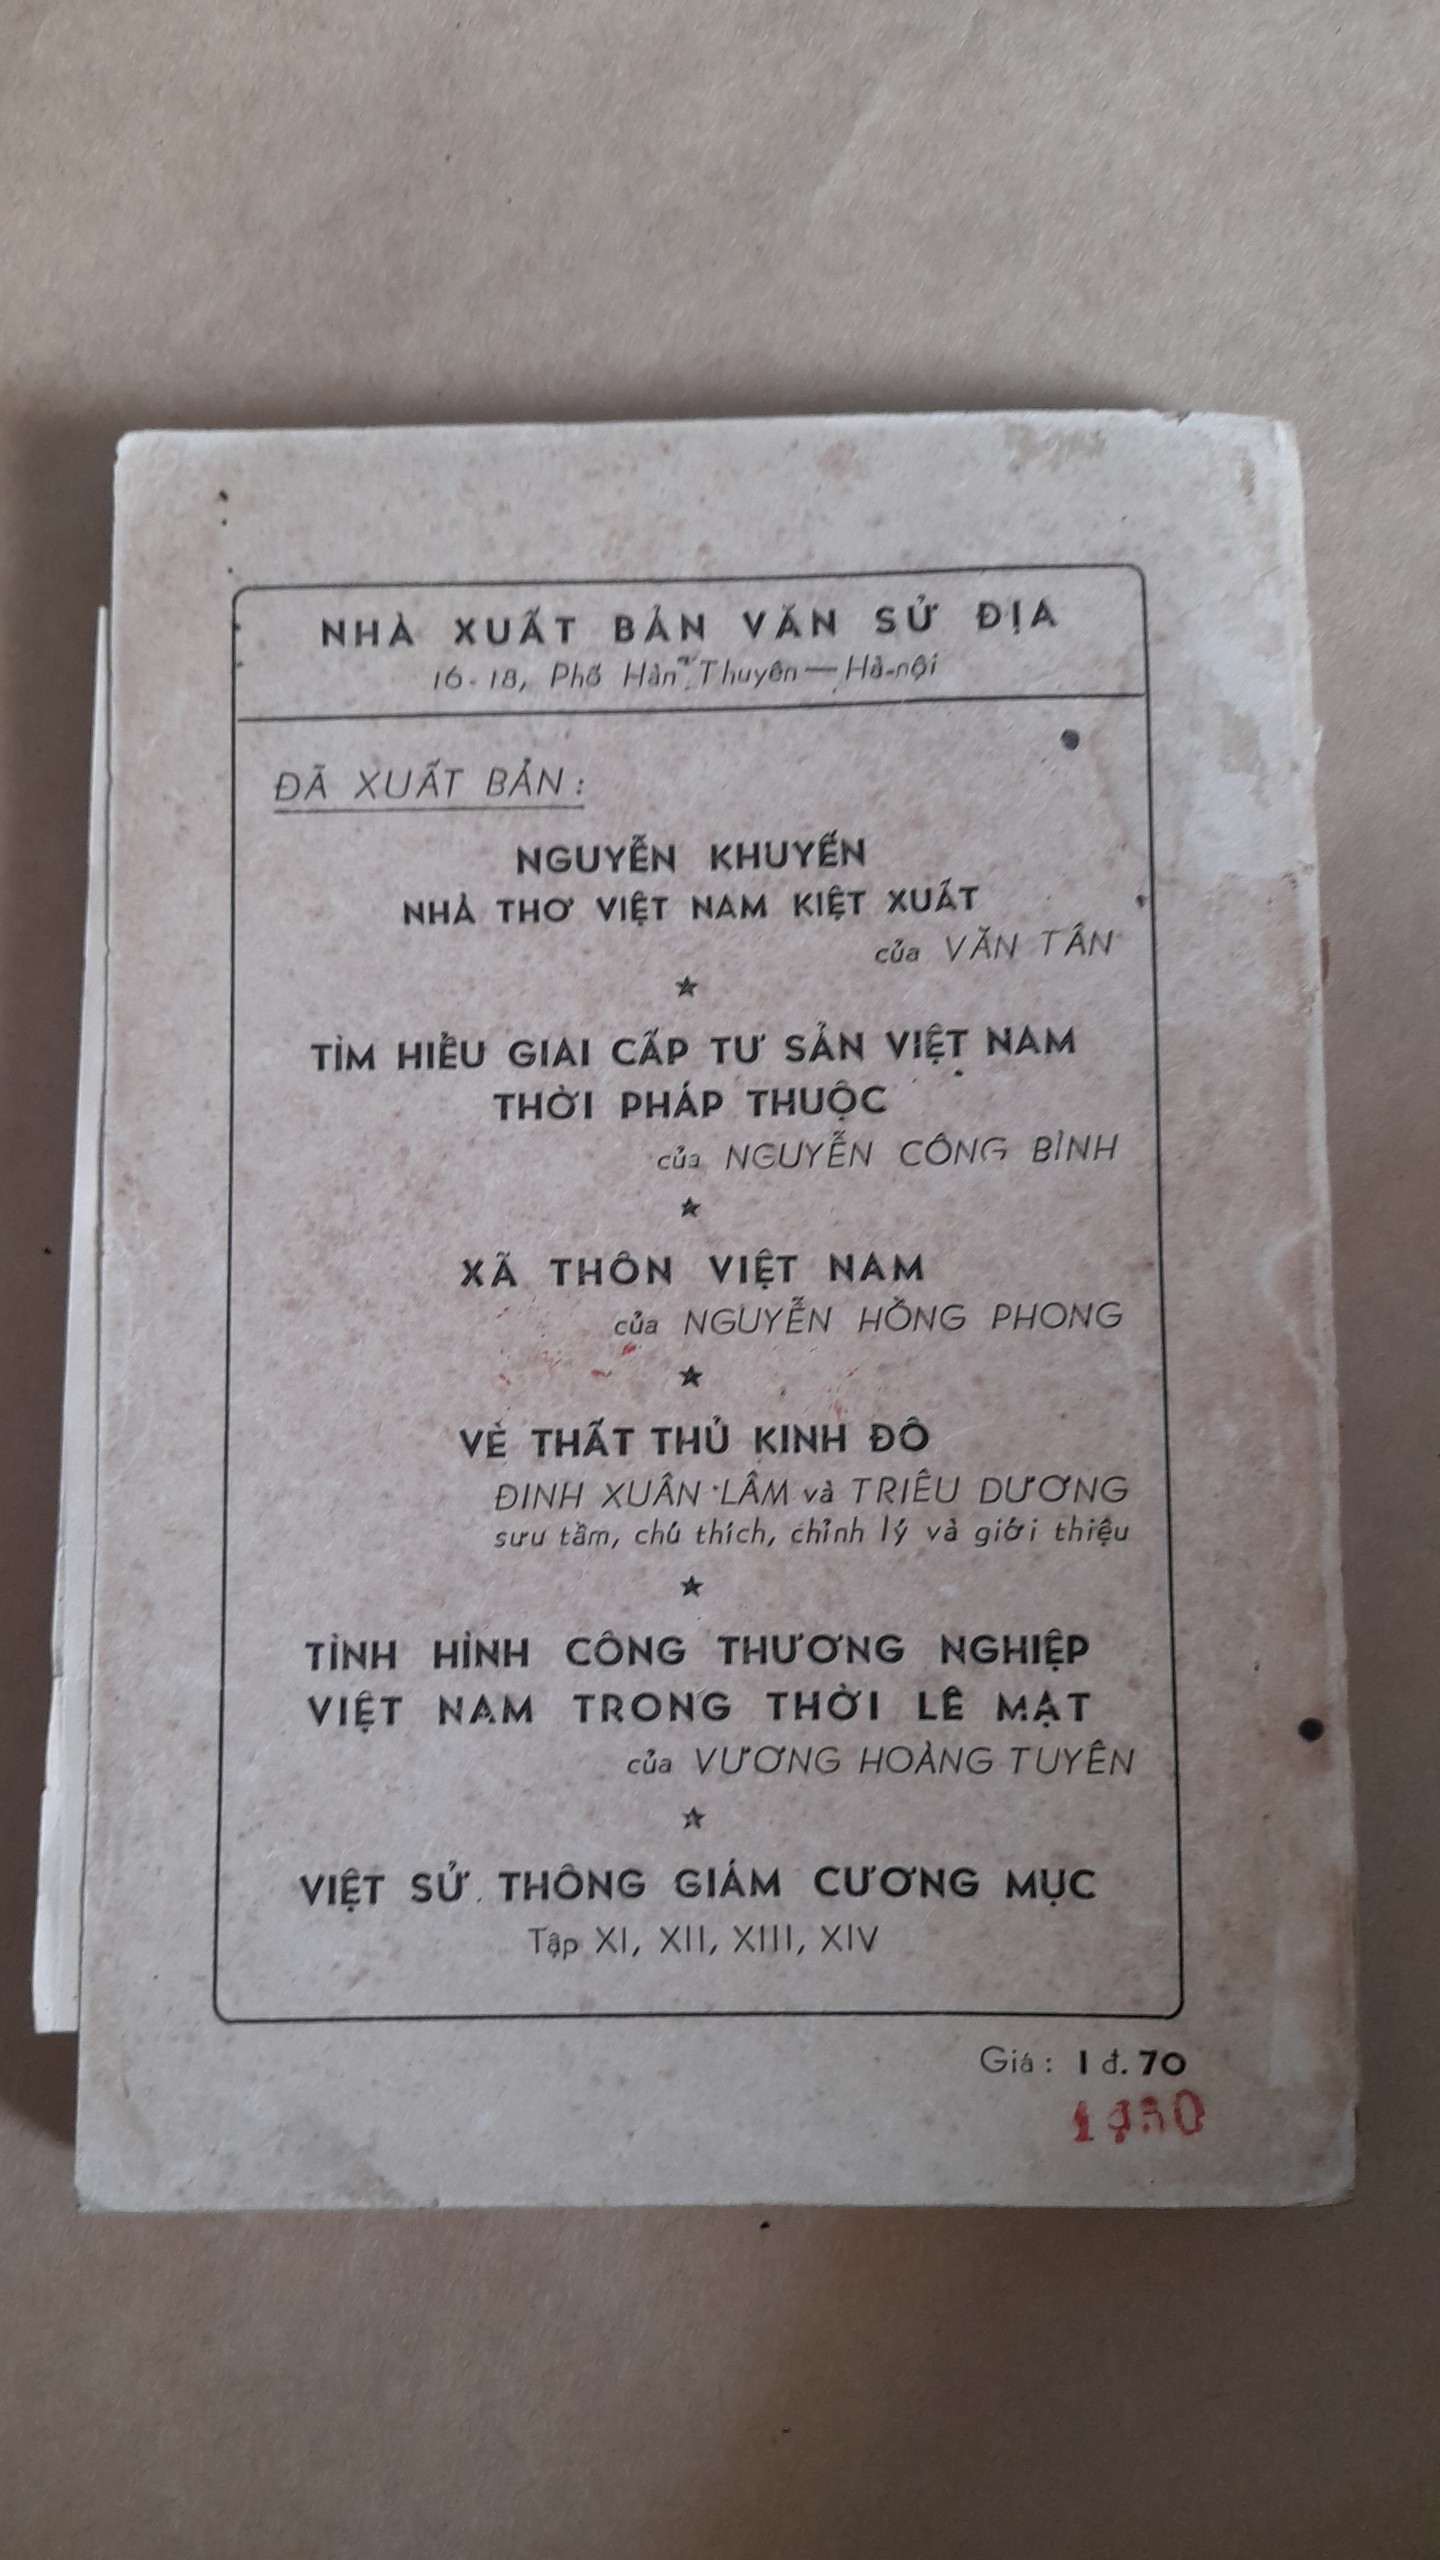 NHÀ XUẤT BẢN VĂN SỬ ĐỊA
16-18, Phố Hàn Thuyên — Hà-nội
ĐÃ XUẤT BẢN :
NGUYỄN KHUYẾN
NHÀ THƠ VIỆT NAM KIỆT XUẤT
của VĂN TÂN
★
TÌM HIỂU GIAI CẤP TƯ SẢN VIỆT NAM
THỜI PHÁP THUỘC
của NGUYỄN CÔNG BÌNH
★
XÃ THÔN VIỆT NAM
của NGUYỄN HỒNG PHONG
★
VÈ THẤT THỦ KINH ĐÔ
ĐINH XUÂN LÂM và TRIÊU DƯƠNG
sưu tầm, chú thích, chỉnh lý và giới thiệu
★
TÌNH HÌNH CÔNG THƯƠNG NGHIỆP
VIỆT NAM TRONG THỜI LÊ MẠT
của VƯƠNG HOÀNG TUYÊN
★
VIỆT SỬ THÔNG GIÁM CƯƠNG MỤC
Tập XI, XII, XIII, XIV
Giá : 1 đ. 70